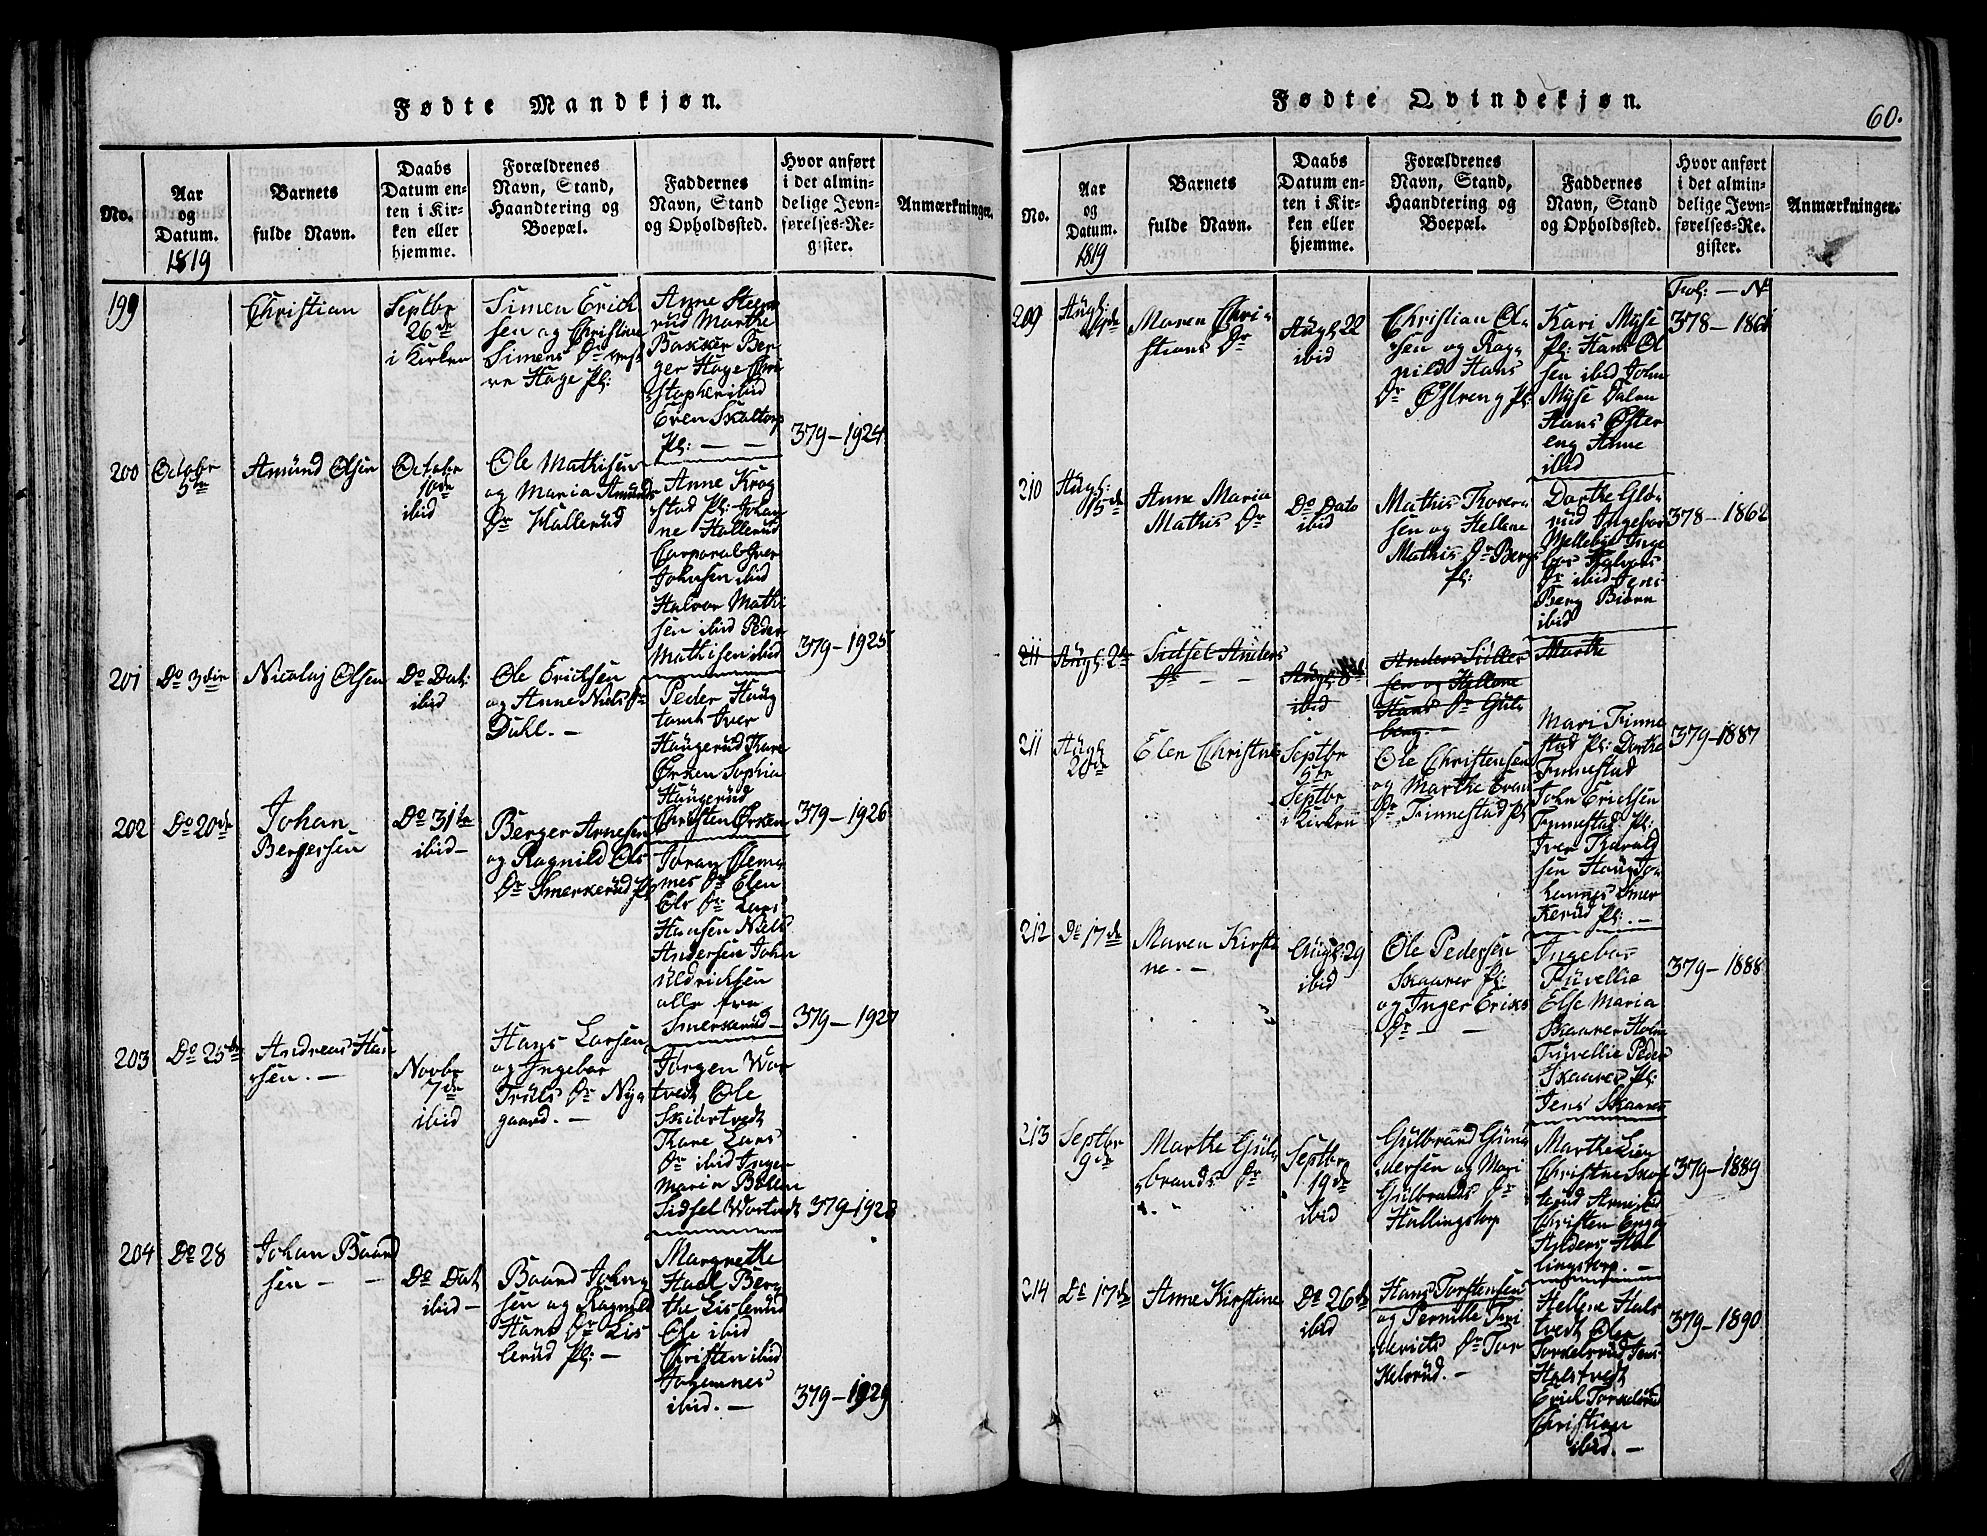 Fødte Mandkjøn.
No.
Aar
og
Datum.
1819
Barnets
fulde Navn.
Daabs
Datum en-
ten i Kir-
ken eller
hjemme.
Forældrenes
Navn, Stand,
Haandtering og
Boepæl.
Faddernes
Navn, Stand
og Opholdssted.
Hvor anført
i det almin-
delige Jevn-
førelses-Re-
gister.
Anmærkninger.
199
Christian
Septbr
26de
i Kirken
Simen Erich
sen og Christine
Simens Dr
re Hage Pl:
Anne Steen
rud Marthe
Bakker Ber
ger Hage Chri
stopher ibid
Even Skaltorp
Pl: —
379–1924
200
Octobr
5te
Amund Olsen
Octobr
10de
ibid
Ole Mathisen
og Maria Amunds
Dr Hallerud
Anne Krog
stad Pl: Johan
ne Hallerud
Corporal Iver
Johnsen ibid
Halvor Mathi
sen ibid Peder
Mathisen ibid
379–1925
201
Do 3die
Nicolaj Olsen
Do Dat:
ibid
Ole Ericksen
og Anne Niels Dr
Dahl. –
Peder Haug
tomt Iver
Haugerud Kare
Ørken Sophia
Haugerud
Christen Ørken
379–1926
202
Do 20de
Johan
Bergersen
Do 31te
ibid –
Berger Arnesen
og Ragnild Ols
Dr Smerkerud Pl
Joran Clem
mes Dr Elen
Ols Dr Lars
Hansen Niels
Andersen John
Uldrichsen
alle fra
Smerkerud –
379–1927
203
Do 25de
Andreas Han
sen. –
Novbr
7de
ibid
Hans Larsen
og Ingebor
Truls Dr Ny
gaard. –
Jørgen Wor
tvedt Ole
Skibrtvedt
Kare Lars
Dr ibid Inger
Maria Bøllen
Sidsel Wortvedt
379–1928
204
Do 28
Johan Baard
sen – –
Do Dat
ibid –
Baard John
sen og Ragnild
Hans Dr Lis
lerud Pl: –
Margrethe
Hasl Berg
the Lislerud
Ole ibid
Christen ibid
Johannes
ibid. –
379–1929
Fødte Qvindekjøn.
60.
No.
Aar
og
Datum.
1819
Barnets
fulde Navn.
Daabs
Datum en-
ten i Kir-
ken eller
hjemme.
Forældrenes
Navn, Stand,
Haandtering og
Boepæl.
Faddernes
Navn, Stand
og Opholdssted.
Hvor anført
i det almin-
delige Jevn-
førelses-Re-
gister.
Anmærkninger.
Fol: — No
209
Augl:
Maren Chri-
stians Dr
Augl: 22
ibid
Christian Ol-
sen og Rag-
nild Hans
Dr Østreng Pl:
Kari Myse
Pl: Hans Ol
sen ibid John
Myse Dalen
Hans Øster
eng Anne
ibid
378–1861
210
Augl:
15de
Anne Maria
Mathis Dr
Do Dato
ibid
Mathis Thores
sen og Hellene
Mathis Dr Berg
Pl:
Dorthe Glø-
rud Ingebor
Mellebye Inge
bor Halvors
Dr ibid Jens
Berg Biørn
ibid
378–1862
211
Augl: 2den
Sidsel Anders
Dr – –
Augl: 8de
ibid
Anders
sen og Hellene
Hans Dr Guls
berg. –
Marthe
211
Augl:
20de
Elen Christne
Septbr
5te
Septbr
i Kirken
Ole Christensen
og Marthe Evan
Dr Finnestad Pl
Mari Finne
stad Pl: Dorthe
Finnestad
John Ericksen
Finnestad Pl:
Iver Thorvald
sen Haug Jo
hannes Smer
kerud Pl: –
379–1887
212
Do 17de
Maren Kirsti
ne. –
Augl: 29
ibid
Ole Pedersen
Skaarer Pl:
og Inger Eriks
Dr – –
Ingebor
Fuvellie
Else Maria
Skaarer Holm
Fuvellie Peder
Skaarer Pl:
Jens Skaarer
379–1888
213
Septbr
9de
Marthe Gul-
brands Dr
Septbr
19de
ibid
Gulbrand Gun
dersen og Mari
Gulbrands Dr
Hallingstorp
Marthe Lien
Christne Skof
terud Arne ibid
Christen Enga
Anders Hal
lingstorp. –
379–1889
214
Do 17de
Anne Kirstine
Do 26de
ibid
Hans Torstensen
og Pernille Fri
derichs Dr Tor
kelsrud. –
Hellene Hals
tvedt Ole
Torkelsrud Jens
Halstvedt
Erich Torkelsrud
Christian
ibid. –
379–1890